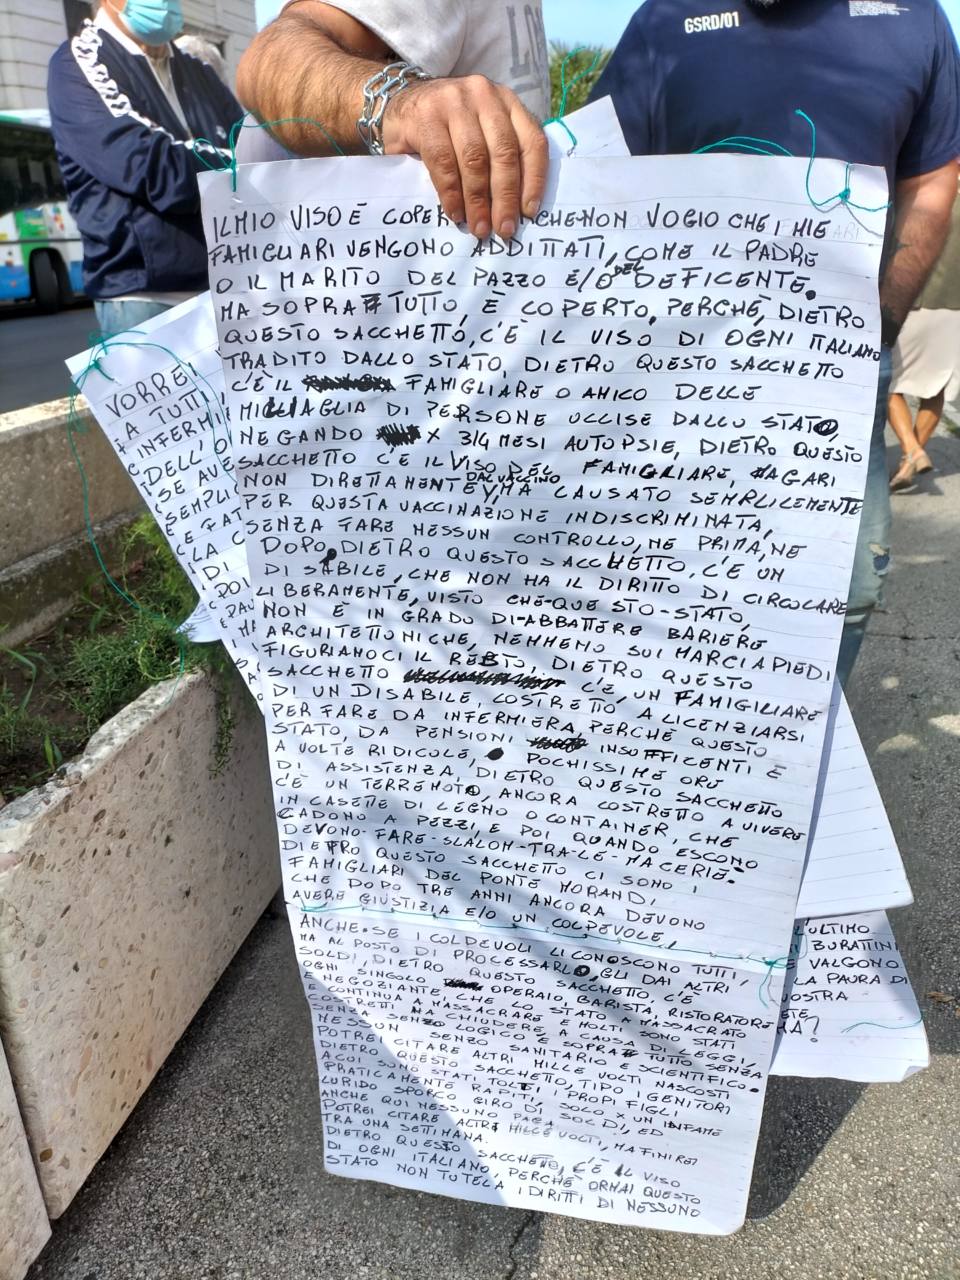 GSRD/01
IL MIO VISO È COPER CHE NON VOGIO CHE I MIE
FAMIGLIARI VENGONO ADDITTATI, COME IL PADRE
O IL MARITO DEL PAZZO E/O DEL DEFICENTE.
MA SOPRA TUTTO, È COPERTO, PERCHÈ, DIETRO
QUESTO SACCHETTO, C'È IL VISO DI OGNI ITALIANO
TRADITO DALLO STATO, DIETRO QUESTO SACCHETTO
C'È IL FAMIGLIARE O AMICO DELLE
MIGLIAGLIA DI PERSONE UCCISE DALLO STATO,
NEGANDO X 3/4 MESI AUTOPSIE, DIETRO QUESTO
SACCHETTO C'È IL VISO DEL FAMIGLIARE, MAGARI
NON DIRETTAMENTE DAL VACCINO, MA CAUSATO SEMPLICEMENTE
PER QUESTA VACCINAZIONE INDISCRIMINATA,
SENZA FARE NESSUN CONTROLLO, NE PRIMA, NE
DOPO, DIETRO QUESTO SACCHETTO, C'È UN
DISABILE, CHE NON HA IL DIRITTO DI CIRCOLARE
LIBERAMENTE, VISTO CHE-QUESTO-STATO,
NON È IN GRADO DI-ABBATTERE BARIERE
ARCHITETTONICHE, NEMMENO SUI MARCIAPIEDI
FIGURIAMOCI IL RESTO, DIETRO QUESTO
SACCHETTO C'È, UN FAMIGLIARE
DI UN DISABILE, COSTRETTO A LICENZIARSI
PER FARE DA INFERMIERA, PERCHÈ QUESTO
STATO, DA PENSIONI INSUFFICENTI E
A VOLTE RIDICOLE, POCHISSIME ORE
DI ASSISTENZA, DIETRO QUESTO SACCHETTO
C'È UN TERREMOTO, ANCORA COSTRETTO A VIVERE
IN CASETTE DI LEGNO O CONTAINER, CHE
CADONO A PEZZI, E POI QUANDO ESCONO
DEVONO-FARE-SLALOM-TRA-LE-MACERIE.
DIETRO QUESTO SACCHETTO CI SONO I
FAMIGLIARI DEL PONTE MORANDI
CHE DOPO TRE ANNI ANCORA DEVONO
AVERE GIUSTIZIA E/O UN COLPEVOLE,
ANCHE-SE I COLPEVOLI LI CONOSCONO TUTTI,
MA AL POSTO DI PROCESSARLO, GLI DAI ALTRI
SOLDI, DIETRO QUESTO SACCHETTO, C'È
OGNI SINGOLO OPERAIO, BARISTA, RISTORATORE
E NEGOZIANTE, CHE LO STATO A MASSACRATO
E CONTINUA A MASSACRARE E MOLTI SONO STATI
COSTRETTI HA CHIUDERE A CAUSA DI LEGGI,
SENZA SENZO LOGICO E SOPRA TUTTO SENZA
NESSUN SENZO SANITARIO E SCIENTIFICO.
POTREI CITARE ALTRI MILLE VOLTI NASCOSTI
DIETRO QUESTO SACCHETTO, TIPO I GENITORI
A CUI SONO STATI TOLTI I PROPI FIGLI
PRATICAMENTE RAPITI, SOLO X UN INFAME
LURIDO SPORCO GIRO DI SOLDI, ED
ANCHE QUI NESSUNO PAGA
POTREI CITARE ALTRI MILLE VOLTI, MA FINIREI
TRA UNA SETTIMANA.
DIETRO QUESTO SACCHETTO, C'È IL VISO
DI OGNI ITALIANO, PERCHÈ ORMAI QUESTO
STATO NON TUTELA I DIRITTI DI NESSUNO
VORRE
A TUTTI
INFERMI
DELL'
SE AVE
SEMPLIC
E FAT
LA C
DI
POI
PAU
L'ULTIMO
BURATTINI
E VALGONO
LA PAURA DI